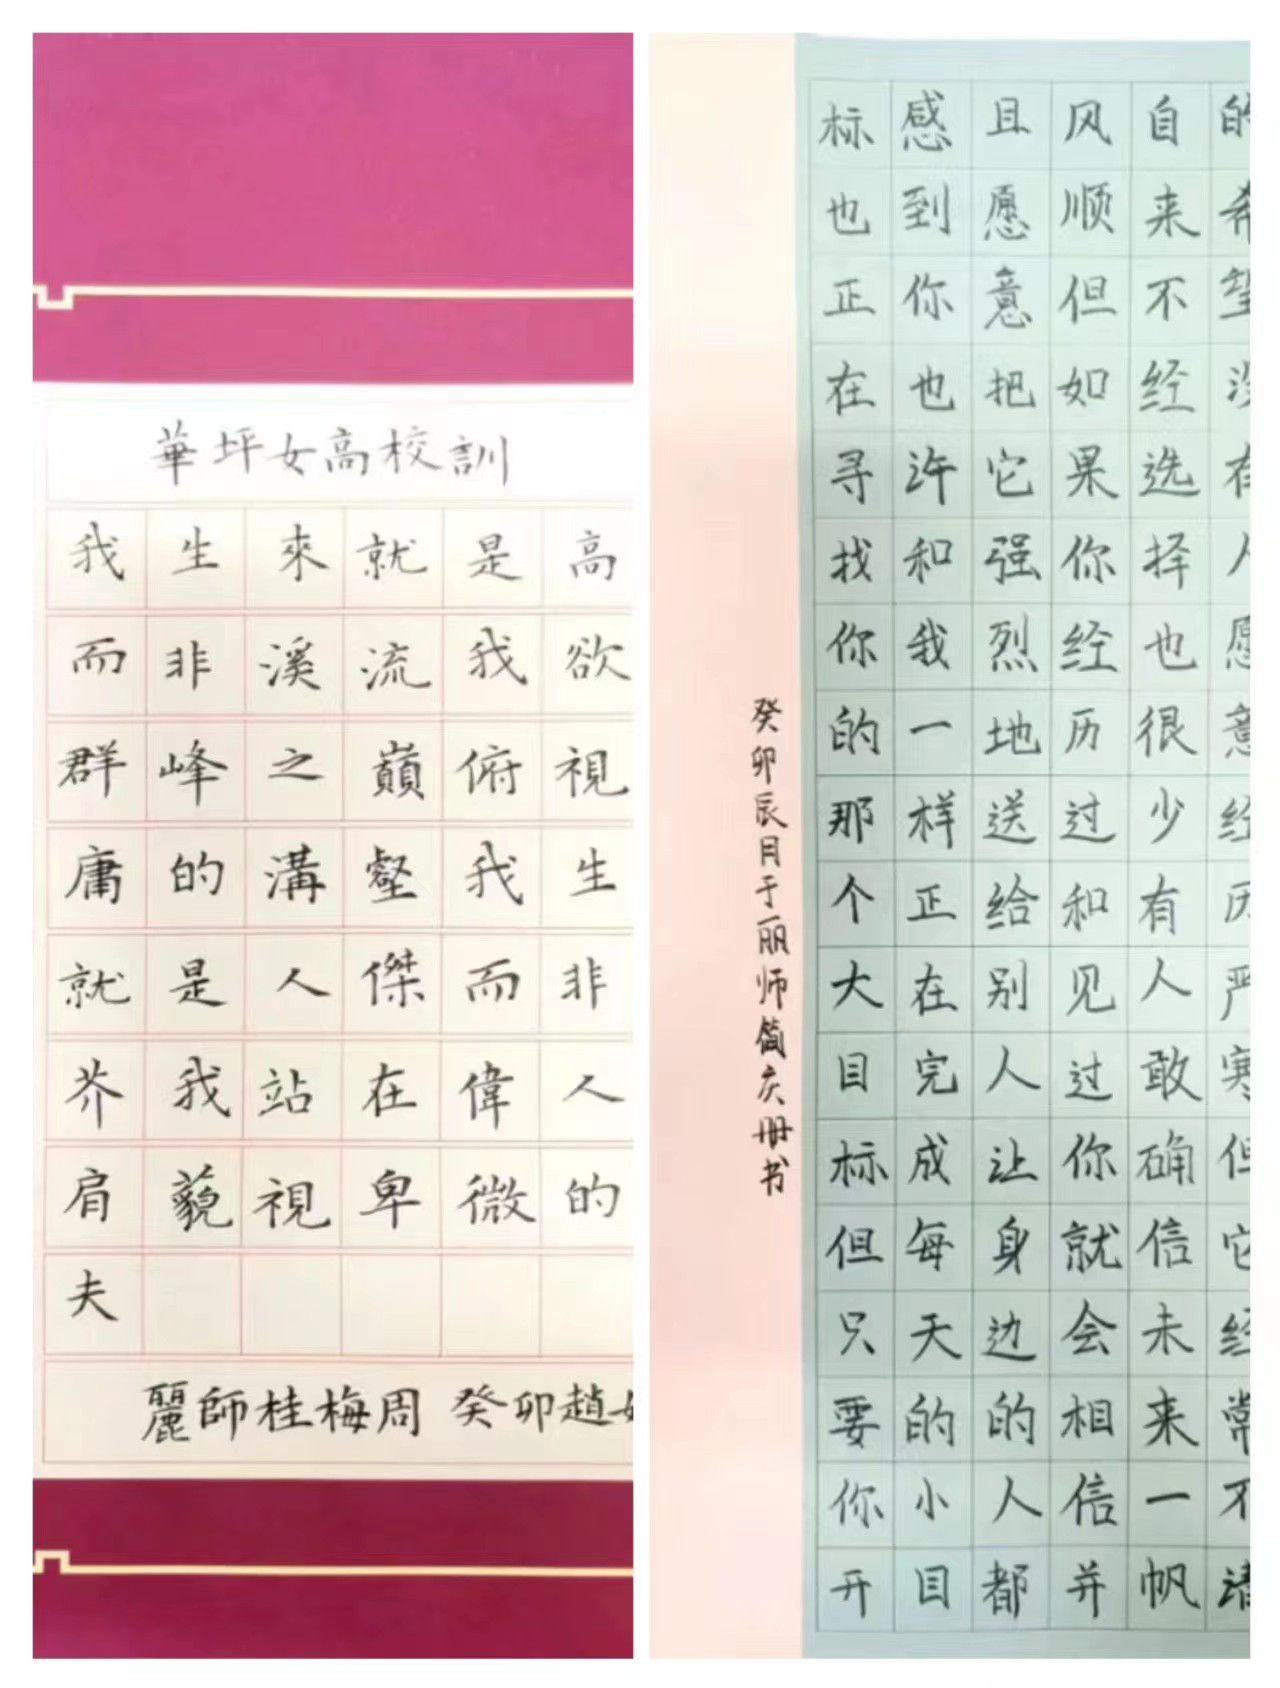 華坪女高校訓
我生來就是高
而非溪流我欲
群峰之巔俯視
庸的溝壑我生
就是人傑而非
芥我站在偉人
肩藐視卑微的
夫
麗師桂梅周 癸卯趙
的希望没有人愿意经历严寒但它经常不请
自来不经选择也很少有人敢确信未来一帆
风顺但如果你经历过和见过你就会相信并
且愿意把它强烈地送给别人让身边的人都
感到你也许和我一样正在完成每天的小目
标也正在寻找你的那个大目标但只要你开
癸卯辰月于丽师简庆册书